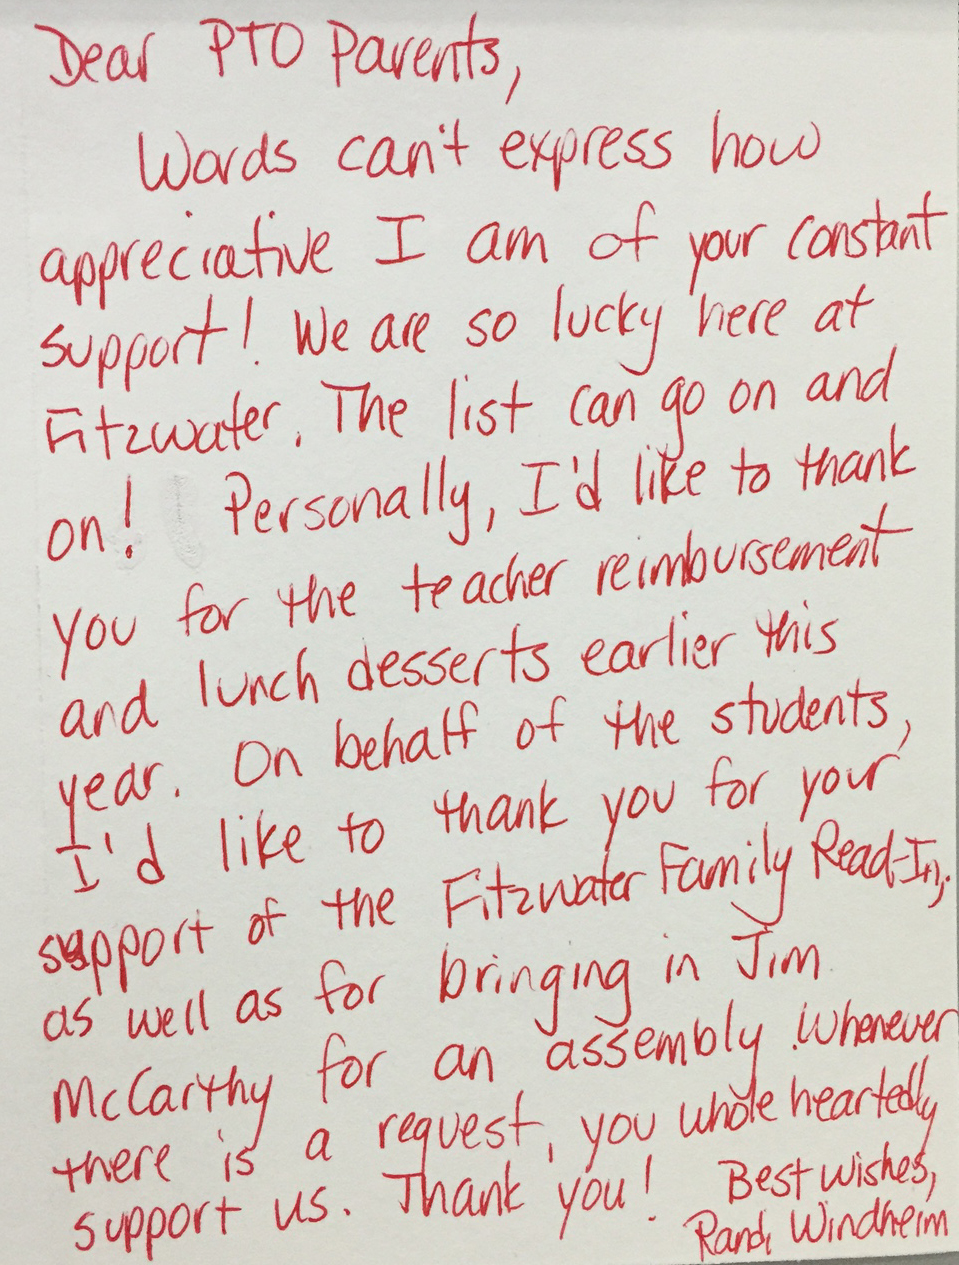 Dear PTO Parents,
Words can't express how
appreciative I am of your constant
support! We are so lucky here at
Fitzwater. The list can go on and
on! Personally, I'd like to thank
you for the teacher reimbursement
and lunch desserts earlier this
year. On behalf of the students,
I'd like to thank you for your
support of the Fitzwater Family Read-In,
as well as for bringing in Jim
McCarthy for an assembly. Whenever
there is a request, you whole heartedly
support us. Thank you! Best Wishes,
Randi Windheim